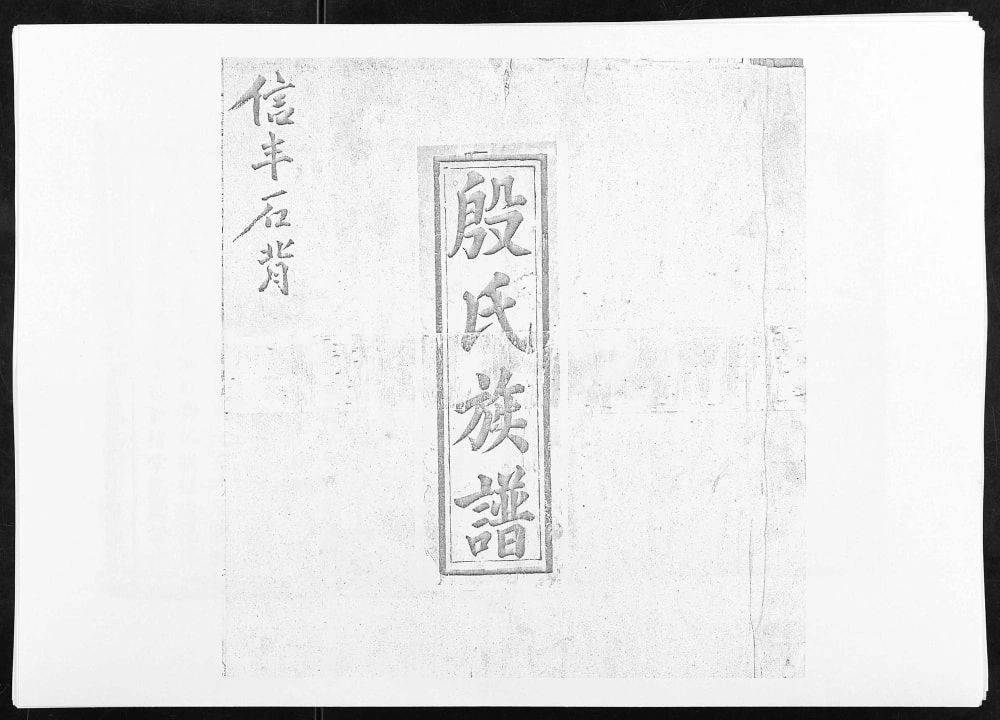 殷氏族譜
信丰石背